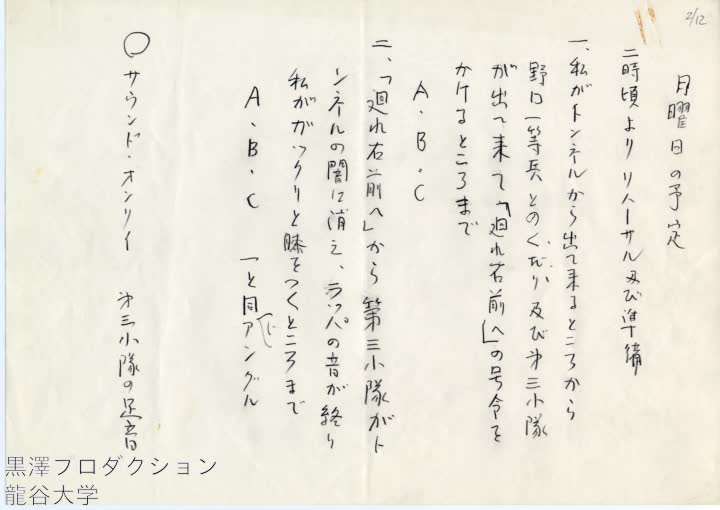 2/12
月曜日の予定
二時頃より リハーサル及び準備
一、私がトンネルから出て来るところから
野口一等兵とのくだり、及び第三小隊
が出て来て「廻れ右前へ」の号令を
かけるところまで
A・B・C
二、「廻れ右前へ」から第三小隊がト
ンネルの闇に消え、ラッパの音が終り
私がガックリと膝をつくところまで
A・B・C 一と同(じ)アングル
○サウンド・オンリイ 第三小隊の足音
黒澤フロダクション
龍谷大学